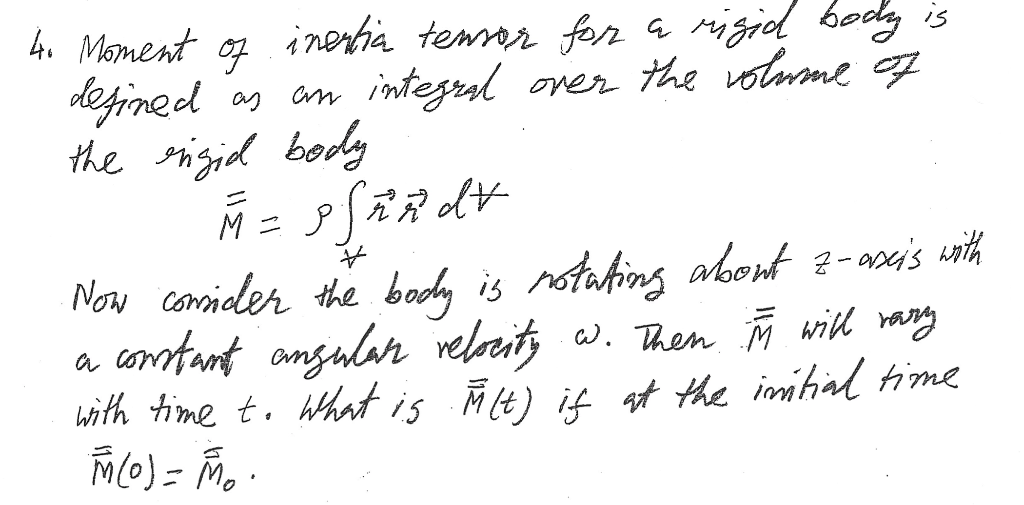 4. Moment of inertia tensor for a rigid body is
defined as an integral over the volume of
the rigid body
M̿ = ρ ∫_V r⃗ r⃗ dV
Now consider the body is rotating about z-axis with
a constant angular velocity ω. Then M̿ will vary
with time t. What is M̿(t) if at the initial time
M̿(0) = M̿₀.